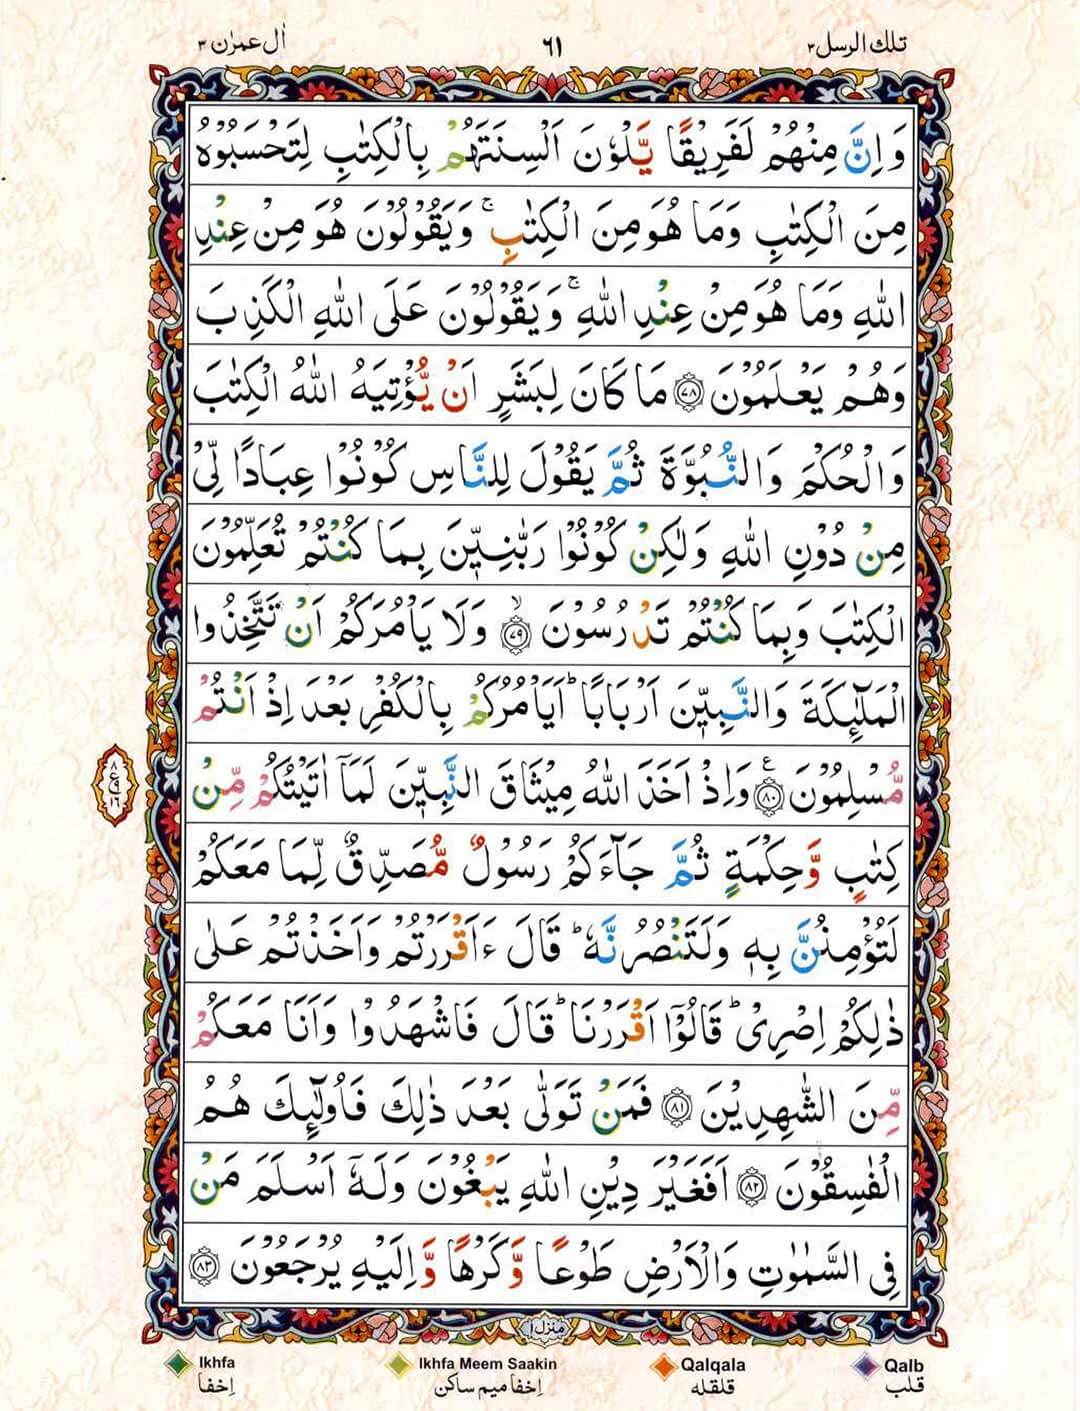 تلك الرسل ۳
٦١
اٰل عمرٰن ۳
وَاِنَّ مِنْهُمْ لَفَرِيْقًا يَّلْوٗنَ اَلْسِنَتَهُمْ بِالْكِتٰبِ لِتَحْسَبُوْهُ
مِنَ الْكِتٰبِ وَمَا هُوَ مِنَ الْكِتٰبِ ۚ وَيَقُوْلُوْنَ هُوَ مِنْ عِنْدِ
اللّٰهِ وَمَا هُوَ مِنْ عِنْدِ اللّٰهِ ۚ وَيَقُوْلُوْنَ عَلَى اللّٰهِ الْكَذِبَ
وَهُمْ يَعْلَمُوْنَ ﴿۷۸﴾ مَا كَانَ لِبَشَرٍ اَنْ يُّؤْتِيَهُ اللّٰهُ الْكِتٰبَ
وَالْحُكْمَ وَالنُّبُوَّةَ ثُمَّ يَقُوْلَ لِلنَّاسِ كُوْنُوْا عِبَادًا لِّىْ
مِنْ دُوْنِ اللّٰهِ وَلٰكِنْ كُوْنُوْا رَبّٰنِيّٖنَ بِمَا كُنْتُمْ تُعَلِّمُوْنَ
الْكِتٰبَ وَبِمَا كُنْتُمْ تَدْرُسُوْنَ ۙ﴿۷۹﴾ وَلَا يَاْمُرَكُمْ اَنْ تَتَّخِذُوا
الْمَلٰٓئِكَةَ وَالنَّبِيّٖنَ اَرْبَابًا ؕ اَيَاْمُرُكُمْ بِالْكُفْرِ بَعْدَ اِذْ اَنْتُمْ
مُّسْلِمُوْنَ ﴿۸۰﴾ ع وَاِذْ اَخَذَ اللّٰهُ مِيْثَاقَ النَّبِيّٖنَ لَمَاۤ اٰتَيْتُكُمْ مِّنْ
۸
ع ۹
۱٦
كِتٰبٍ وَّحِكْمَةٍ ثُمَّ جَآءَكُمْ رَسُوْلٌ مُّصَدِّقٌ لِّمَا مَعَكُمْ
لَتُؤْمِنُنَّ بِهٖ وَلَتَنْصُرُنَّهٗ ؕ قَالَ ءَاَقْرَرْتُمْ وَاَخَذْتُمْ عَلٰى
ذٰلِكُمْ اِصْرِىْ ؕ قَالُوْۤا اَقْرَرْنَا ؕ قَالَ فَاشْهَدُوْا وَاَنَا مَعَكُمْ
مِّنَ الشّٰهِدِيْنَ ﴿۸۱﴾ فَمَنْ تَوَلّٰى بَعْدَ ذٰلِكَ فَاُولٰٓئِكَ هُمُ
الْفٰسِقُوْنَ ﴿۸۲﴾ اَفَغَيْرَ دِيْنِ اللّٰهِ يَبْغُوْنَ وَلَهٗۤ اَسْلَمَ مَنْ
فِى السَّمٰوٰتِ وَالْاَرْضِ طَوْعًا وَّكَرْهًا وَّاِلَيْهِ يُرْجَعُوْنَ ﴿۸۳﴾
منزل ۱
Ikhfa
اِخفا
Ikhfa Meem Saakin
اِخفا میم ساکن
Qalqala
قلقلہ
Qalb
قلب